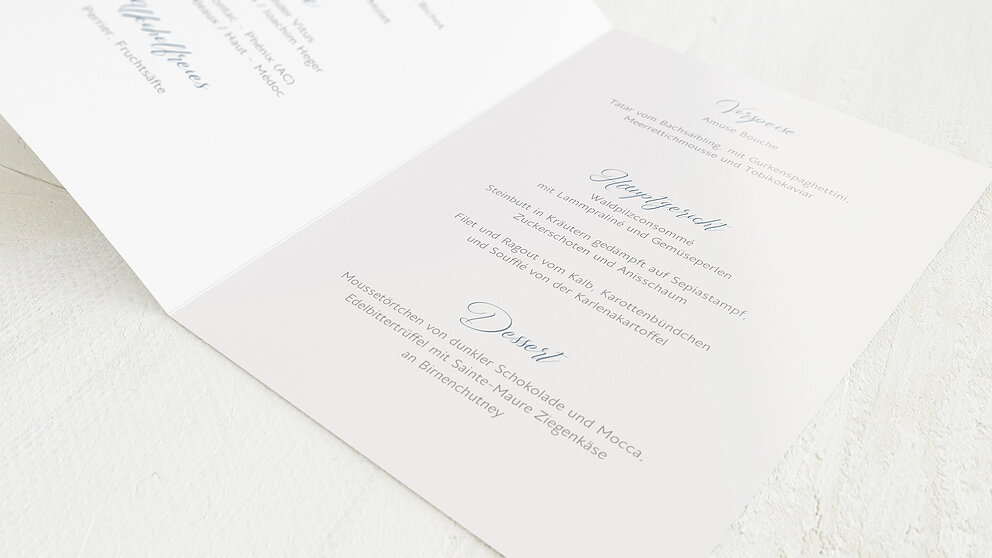 Vitus
/ Joachim Heger
Phénix (AC)
/ Haut - Médoc
Perrier, Fruchtsäfte
Vorspeise
Amuse Bouche
Tatar vom Bachsaibling, mit Gurkenspaghettini,
Meerrettichmousse und Tobikokaviar
Hauptgericht
Waldpilzconsommé
mit Lammpraliné und Gemüseperlen
Steinbutt in Kräutern gedämpft auf Sepiastampf,
Zuckerschoten und Anisschaum
Filet und Ragout vom Kalb, Karottenbündchen
und Soufflé von der Karlenakartoffel
Dessert
Moussetörtchen von dunkler Schokolade und Mocca,
Edelbittertrüffel mit Sainte-Maure Ziegenkäse
an Birnenchutney